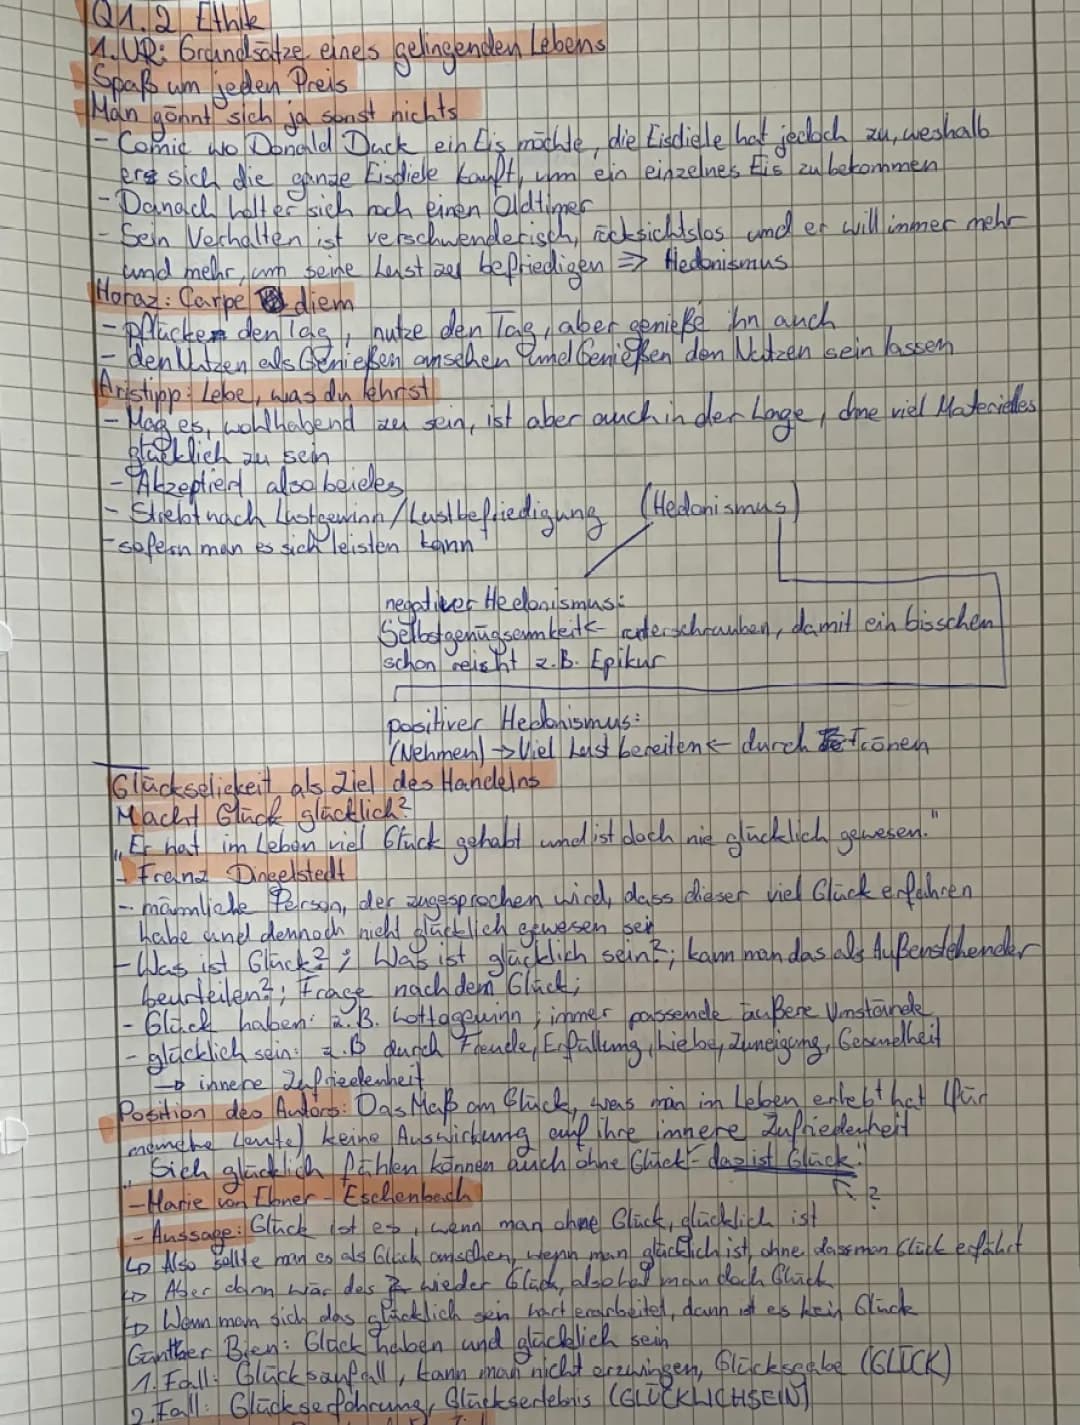 Q1.2 Ethik
1. UR: Grundsätze eines gelingenden Lebens
Spaß um jeden Preis
Man gönnt sich ja sonst nichts
- Comic wo Donald Duck ein Eis möchte, die Eisdiele hat jedoch zu, weshalb
er sich die ganze Eisdiele kauft, um ein einzelnes Eis zu bekommen
- Danach holt er sich noch einen Oldtimer
- Sein Verhalten ist verschwenderisch, rücksichtslos und er will immer mehr
und mehr, um seine Lust zu befriedigen => Hedonismus
Horaz: Carpe diem
- pflücke den Tag, nutze den Tag, aber genieße ihn auch
- den Nutzen als Genießen ansehen und Genießen den Nutzen sein lassen
Aristipp: Lebe, was du lehrst
- Mag es, wohlhabend zu sein, ist aber auch in der Lage, ohne viel Materielles
glücklich zu sein
- Akzeptiert also beides
- Strebt nach Lustgewinn/Lustbefriedigung (Hedonismus)
- sofern man es sich leisten kann
negativer Hedonismus:
Selbstgenügsamkeit <- runterschrauben, damit ein bisschen
schon reicht z.B. Epikur
positiver Hedonismus:
(Nehmen) -> Viel Lust bereiten <- durch
Glückseligkeit als Ziel des Handelns
Macht Glück glücklich?
„Er hat im Leben viel Glück gehabt und ist doch nie glücklich gewesen."
- Franz Dingelstedt
- männliche Person, der zugesprochen wird, dass dieser viel Glück erfahren
habe und dennoch nicht glücklich gewesen sei
- Was ist Glück?; Was ist glücklich sein?; kann man das als Außenstehender
beurteilen?; Frage nach dem Glück;
- Glück haben: z.B. Lottogewinn; immer passende äußere Umstände
- glücklich sein: z.B durch Freude, Erfüllung, Liebe, Zuneigung, Gesundheit
-> innere Zufriedenheit
Position des Autors: Das Maß an Glück, was man im Leben erlebt hat (für
manche Leute) keine Auswirkung auf ihre innere Zufriedenheit
„Sich glücklich fühlen können auch ohne Glück - das ist Glück."
- Marie von Ebner - Eschenbach ?
- Aussage: Glück ist es, wenn man ohne Glück, glücklich ist
↳ Also sollte man es als Glück ansehen, wenn man glücklich ist, ohne dass man Glück erfährt
↳ Aber dann wär das wieder Glück, also hat man doch Glück
↳ Wenn man sich das glücklich sein hart erarbeitet, dann ist es kein Glück
Günther Bien: Glück haben und glücklich sein
1. Fall: Glückszufall, kann man nicht erzwingen, Glücksgabe (GLÜCK)
2. Fall: Glückserfahrung, Glückserlebnis (GLÜCKLICHSEIN)